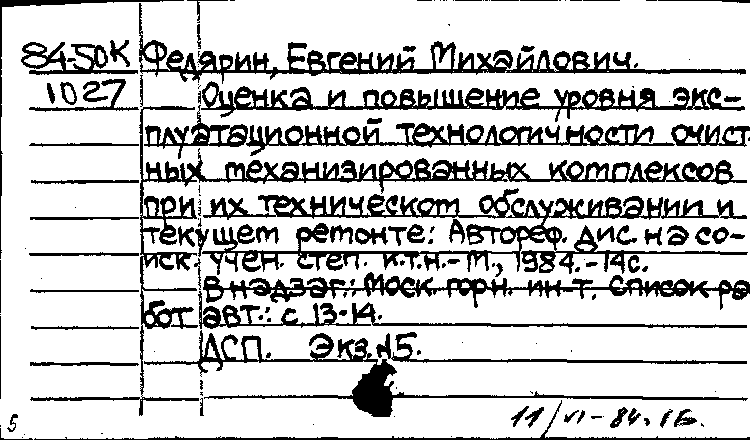 84-50К Федярин, Евгений Михайлович.
1027 Оценка и повышение уровня экс-
плуатационной технологичности очист
ных механизированных комплексов
при их техническом обслуживании и
текущем ремонте: Автореф. дис. на со-
иск. учен. степ. к.т.н.- М., 1984.-14с.
В надзаг.: Моск. горн. ин-т. Список ра
бот авт.: с. 13-14.
ДСП. Экз.№5.
11/VI-84.
5